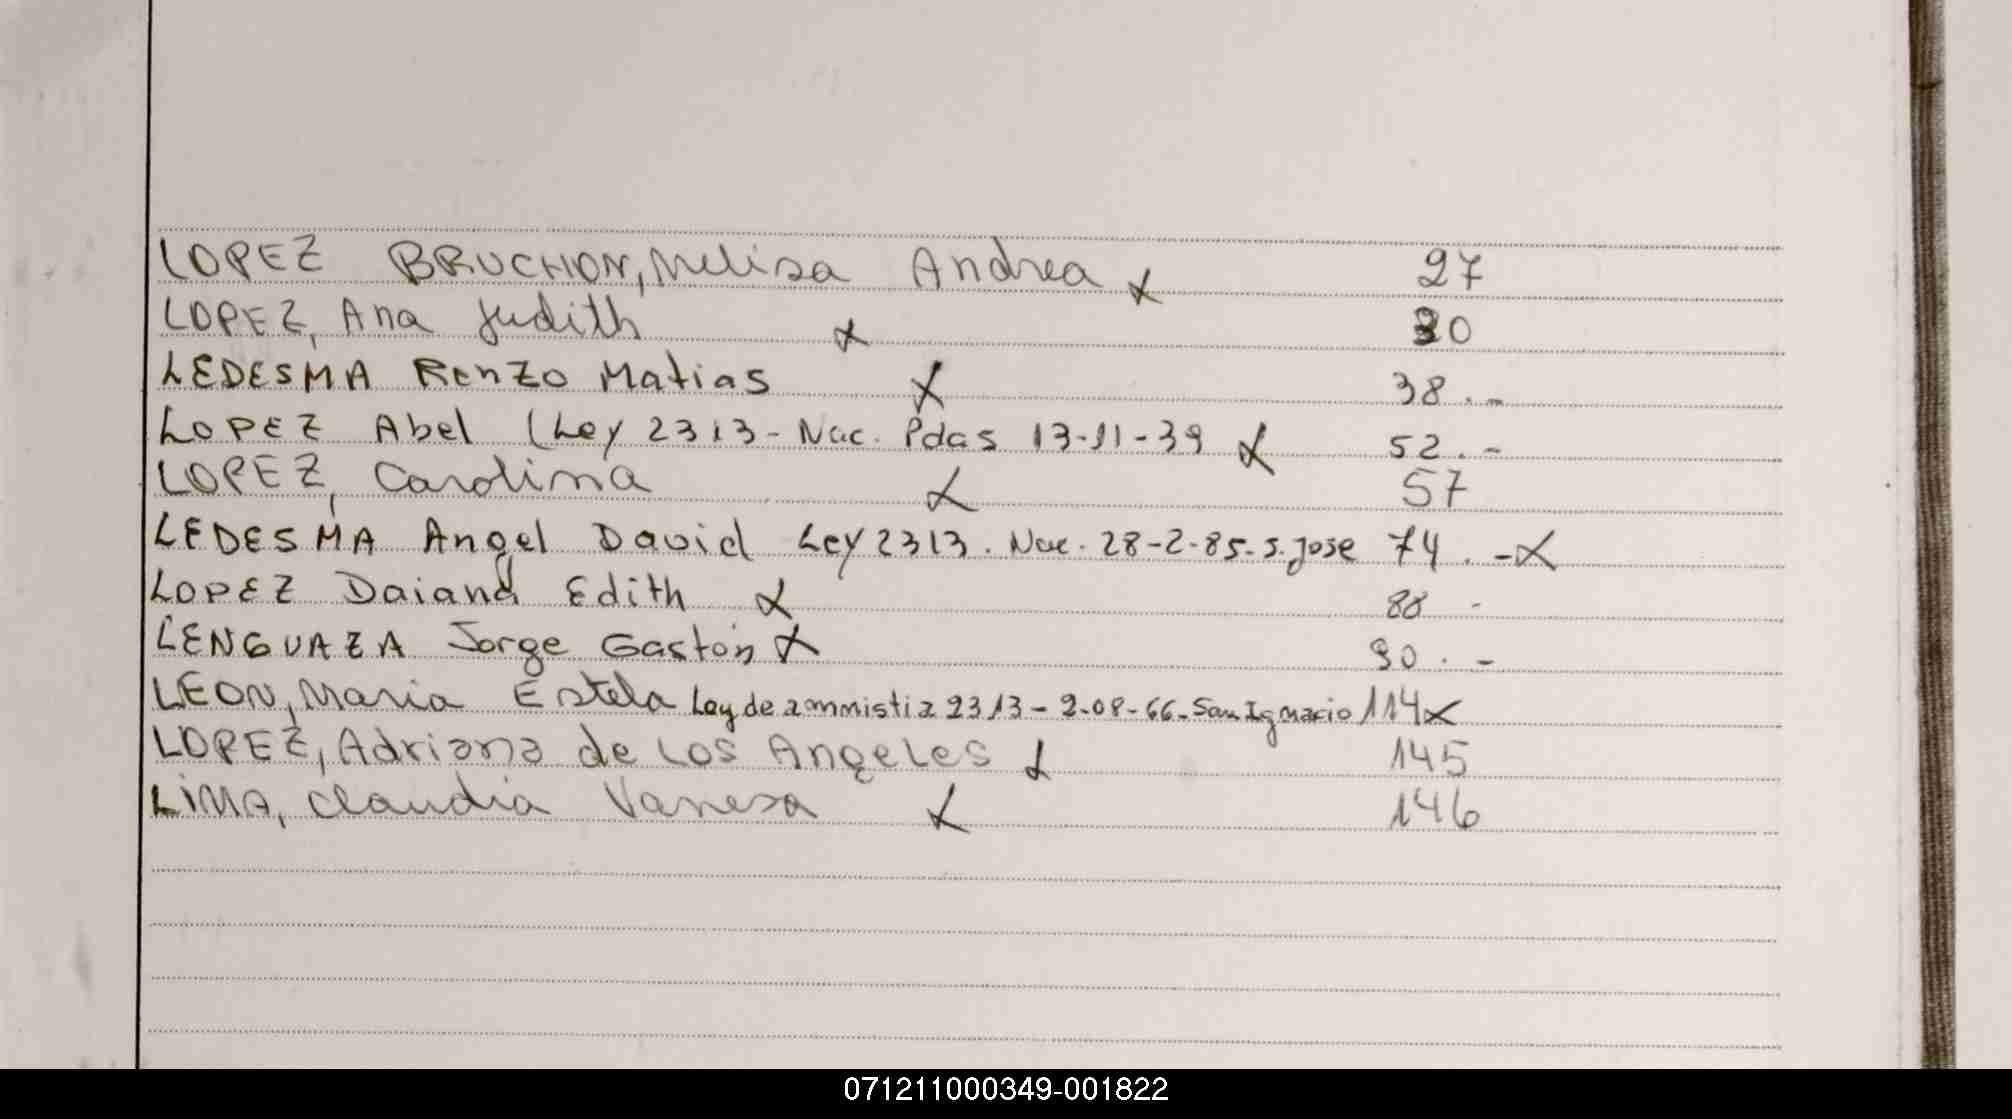 LOPEZ BRUCHON, Melisa Andrea x 27
LOPEZ, Ana Judith x 30
LEDESMA Renzo Matias x 38.-
LOPEZ Abel (Ley 2313- Nac. Pdas 13-11-39 x 52.-
LOPEZ, Carolina x 57
LEDESMA Angel David Ley 2313. Nac. 28-2-85-S. Jose 74.-x
LOPEZ Daiana Edith x 88 -
LENGUAZA Jorge Gastón x 90.-
LEON, Maria Estela Ley de ammistia 2313- 2-08-66- San Ignacio 114x
LOPEZ, Adriana de Los Angeles x 145
LIMA, Claudia Vanesa x 146
071211000349-001822